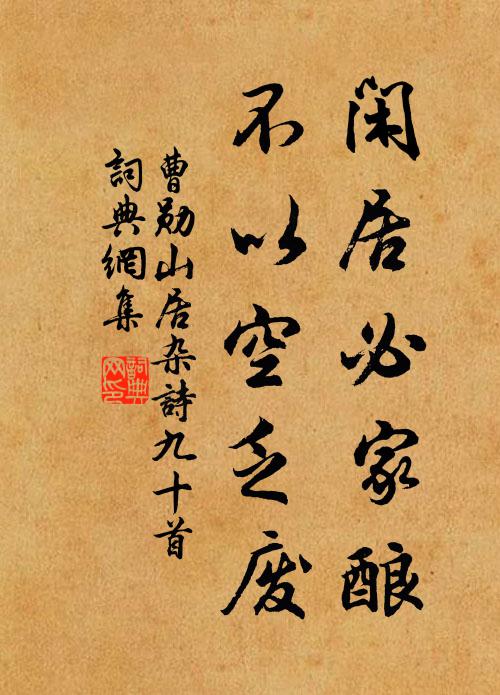 闲居必家酿
不以空乏废
曹勋山居杂詩九十首
詞典網集
詞典网印